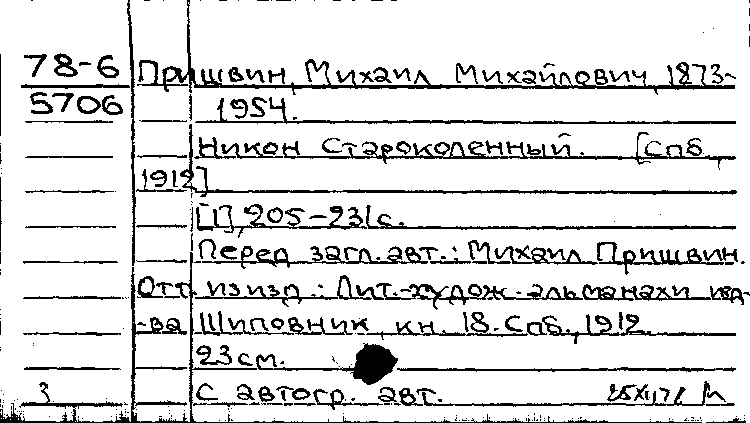 78-6 Пришвин, Михаил Михайлович, 1873-
5706 1954.
Никон Староколенный. [Спб.,
1912]
[1], 205-231с.
Перед загл. авт.: Михаил Пришвин.
Отт. из изд.: Лит.-худож. альманахи изд-
-ва Шиповник, кн. 18. Спб., 1912.
23см.
3 С автогр. авт.